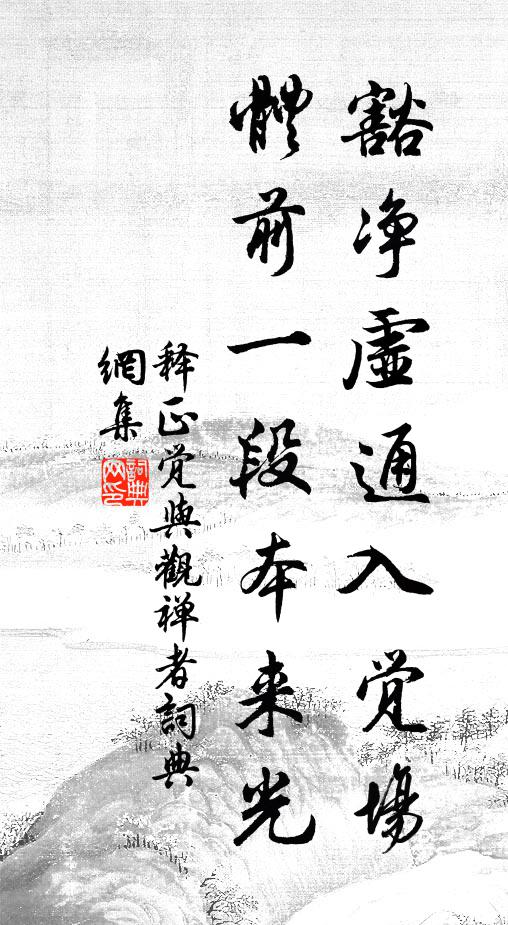 豁净虚通入觉場
體前一段本来光
释正觉與觀禅者詞典
網集
詞典
网印